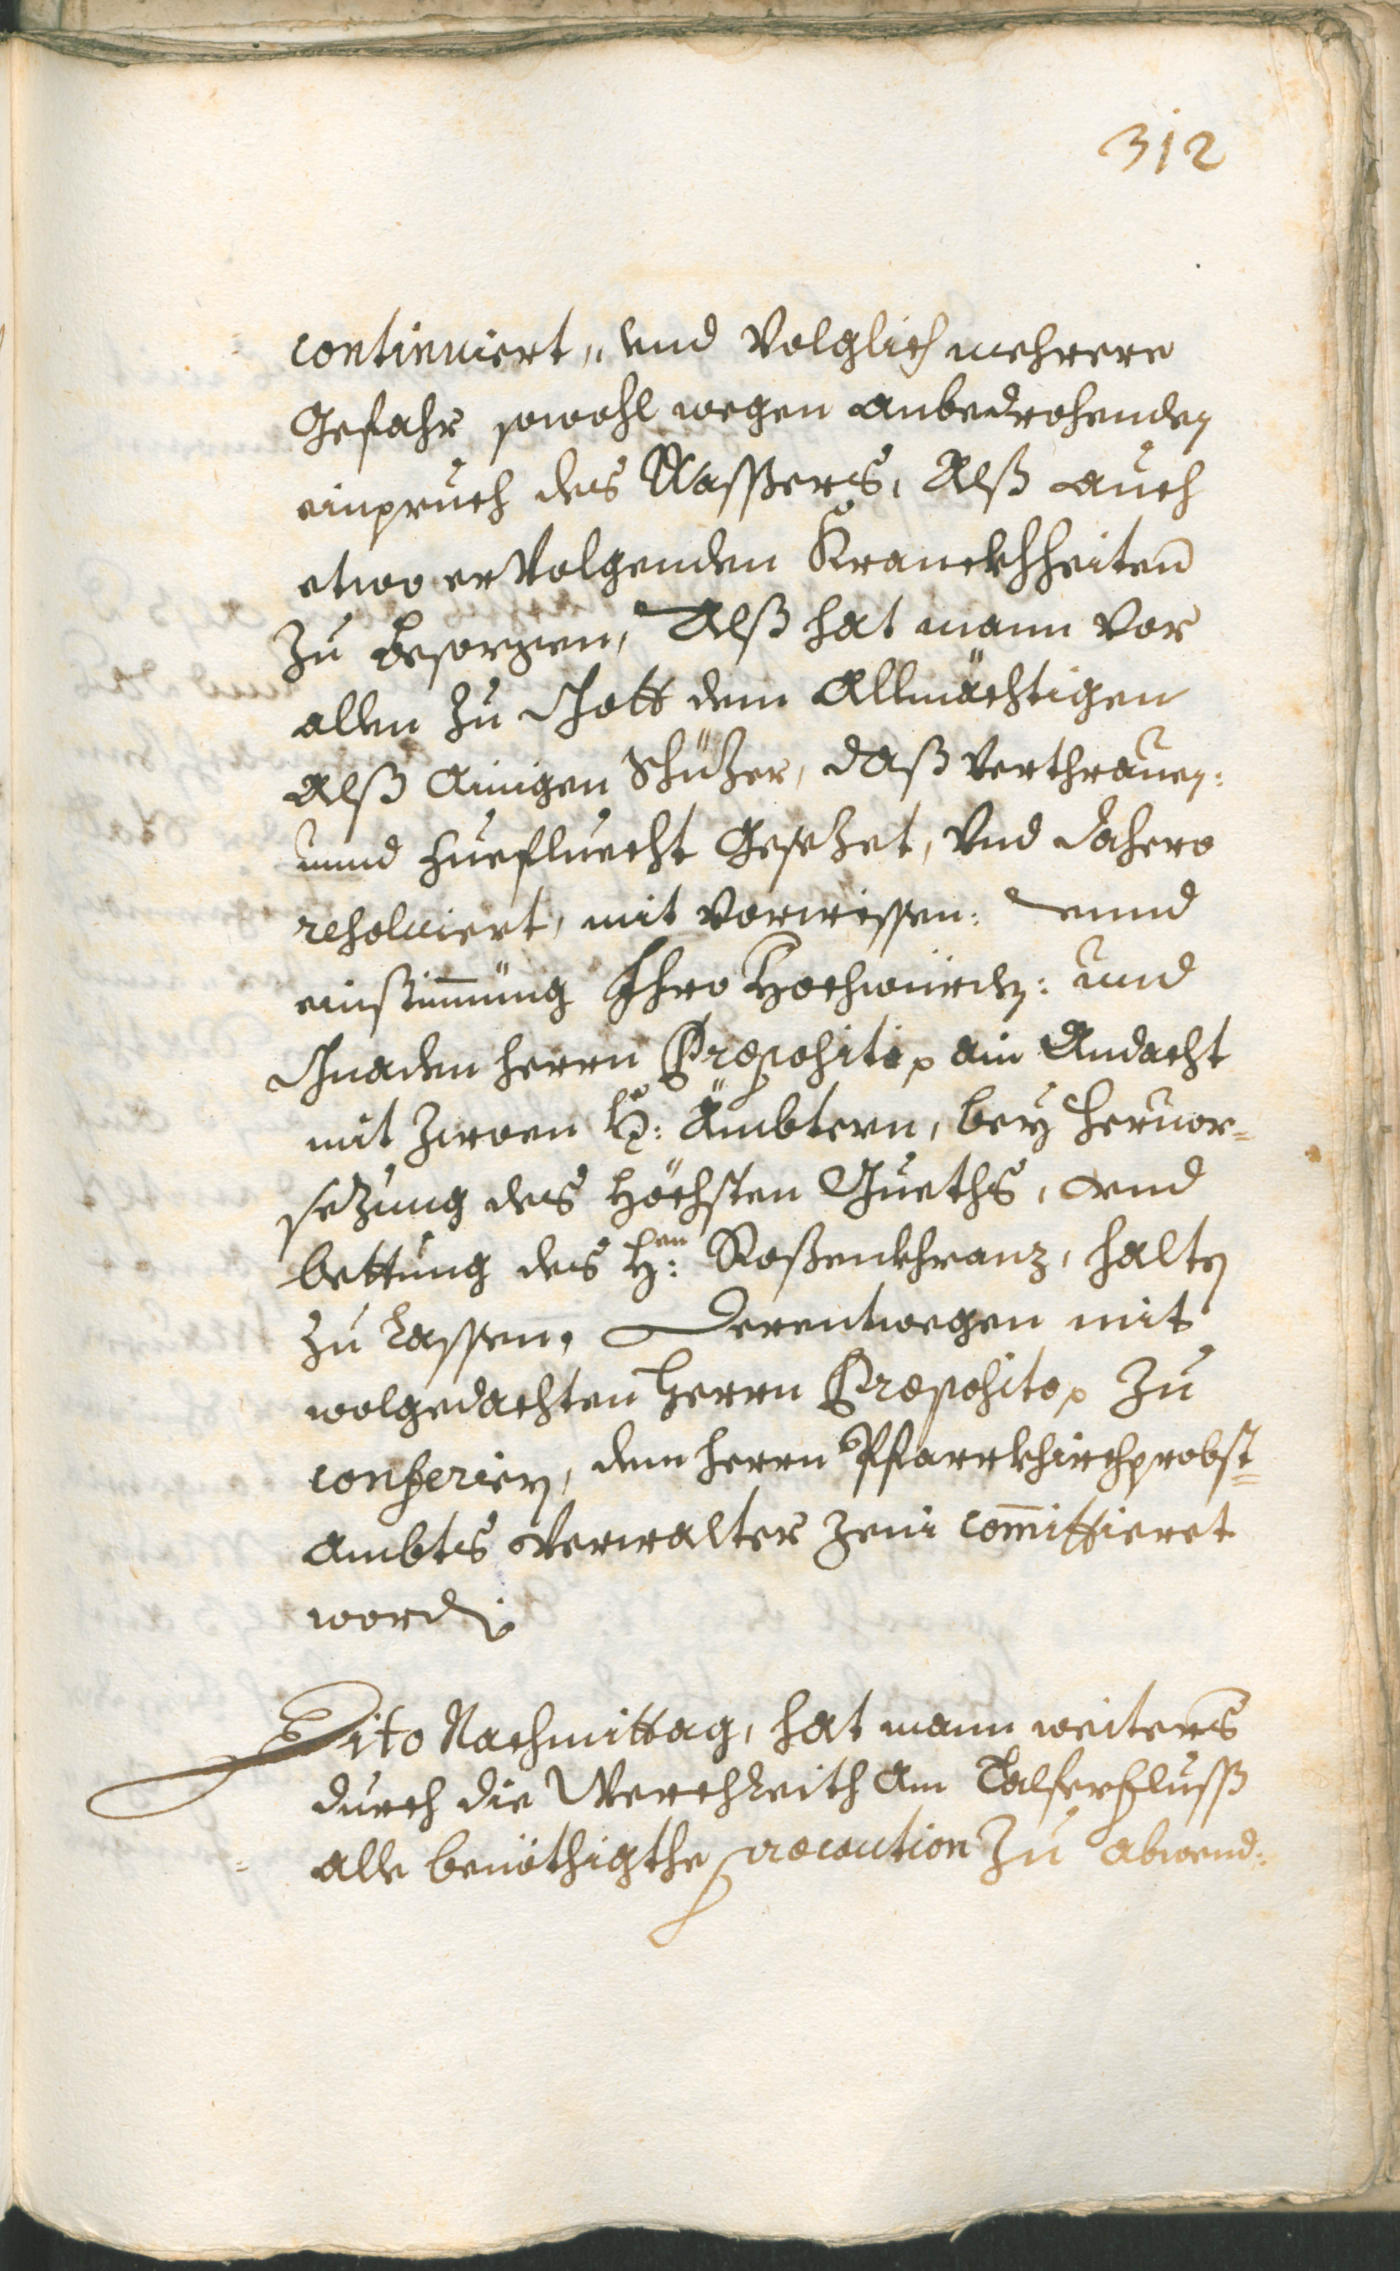 312
continuiert, und volglich mehrere
Gefahr sowohl wegen anbedrohenden
einpruch des Wassers, Alß auch
etwo ervolgenden Kranckhheiten
zu besorgen, Alß hat mann vor
allen zu Gott dem Allmächtigen
Alß Ainigen Schüzer, daß verthrauen:
unnd Zuefluecht Gesezet, Und dahero
resolviert, mit vorwissen: unnd
einstimmung Ihro Hochwürden: und
Gnaden herrn Præpositi, ain Andacht
mit zwoen H: Ämbtern, bey hervor=
sezung des Höchsten Gueths, und
bettung des H:en Roßenkhranz, halten
zu lassen, Derentwegen mit
wolgedachten Herrn Præposito, zu
conferiern, dem herrn Pfarrkhirchprobst=
Ambts Verwalter Zeni committieret
worden.
Dito Nachmittag, hat mann weiters
durch die Werchleith am Talferfluss
alle benöthigthe præcaution zu abwend: